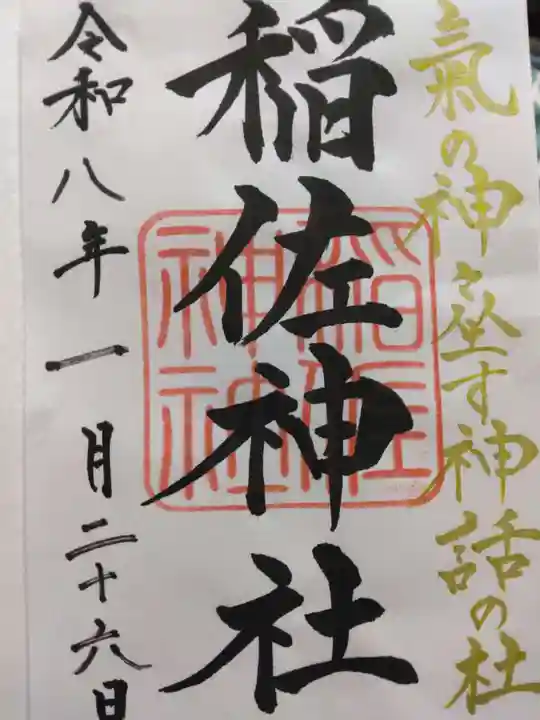 氣の神さ座す神話の杜
稲佐神社
稲佐
神社
令和八年一月二十六日